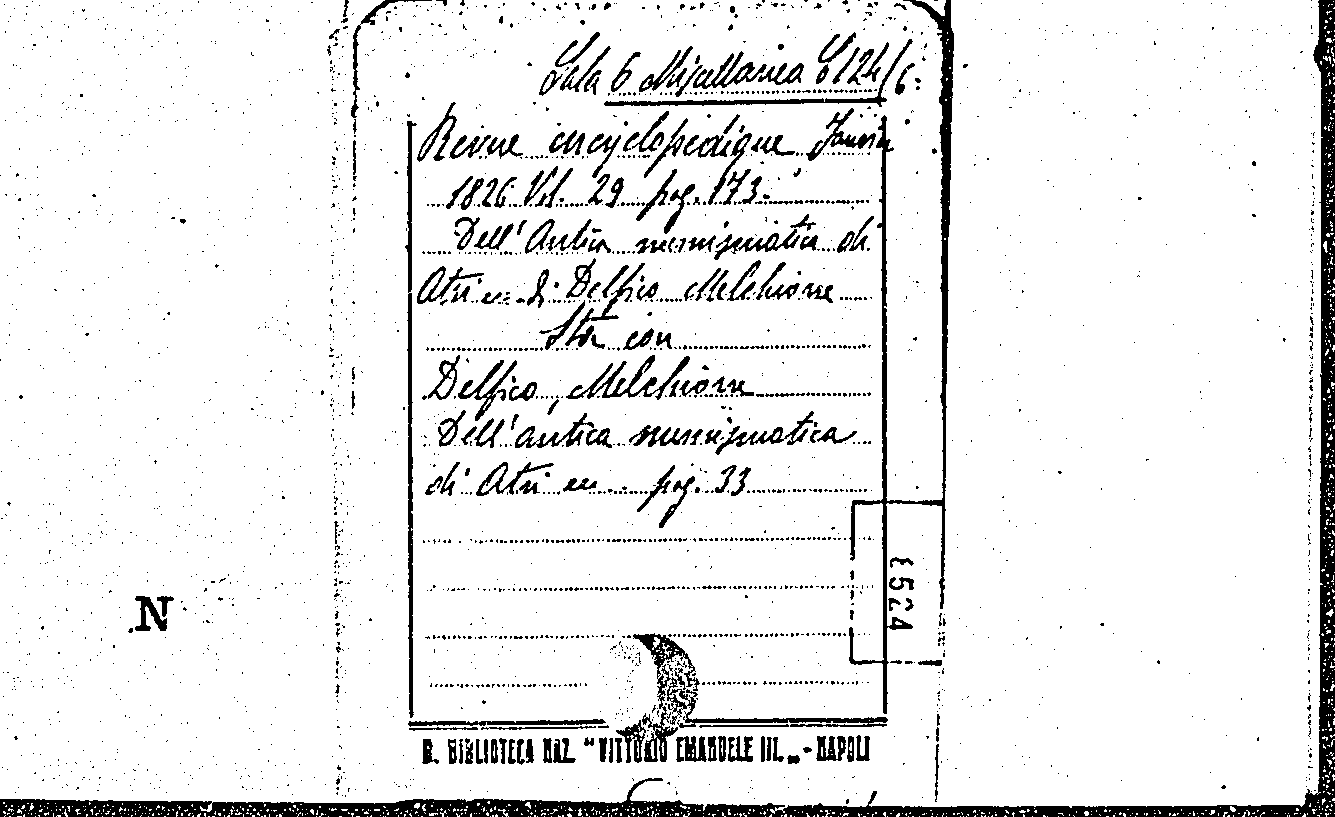 Sala 6 Miscellanea C124/6.
Revue encyclopedique Janvier
1826 Vol. 29 pag. 173.
Dell'Antica numismatica di
Atri ecc. di Delfico Melchiorre
Sta con
Delfico, Melchiorre
Dell'antica numismatica
di Atri ecc.. pag. 33
8524
N
R. BIBLIOTECA NAZ. "VITTORIO EMANUELE III." - NAPOLI